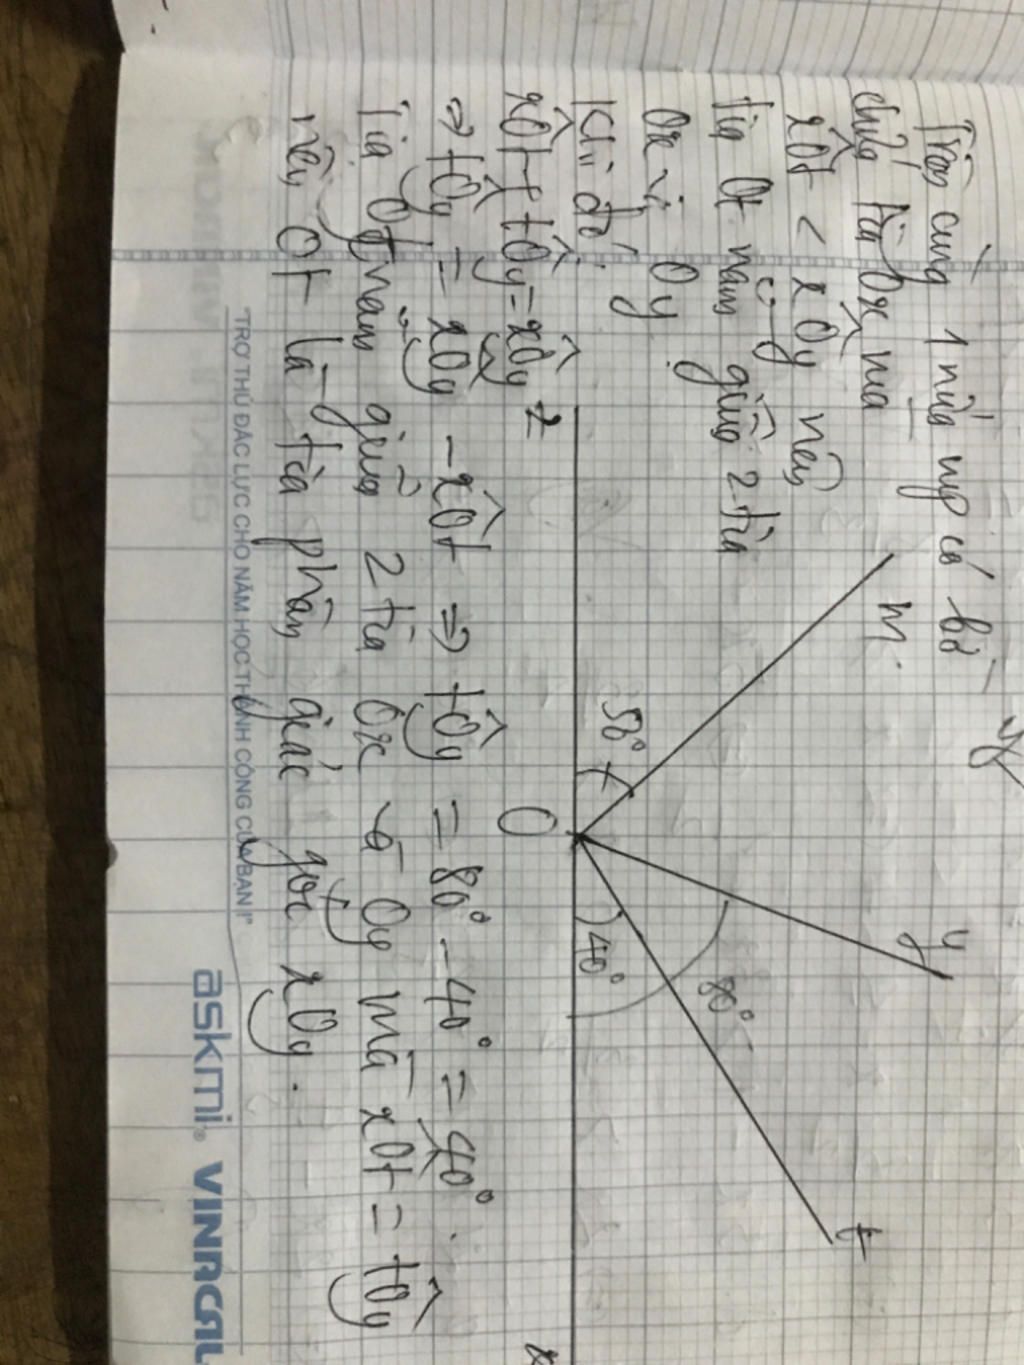 Trên cùng 1 nửa mp có bờ
chứa tia Ox nửa
xOt < xOy nên
tia Ot nằm giữa 2 tia
Ox và Oy
Khi đó
xOt + tOy = xOy
=> tOy = xOy - xOt => tOy = 80° - 40° = 40°.
Tia Ot nằm giữa 2 tia Ox và Oy mà xOt = tOy
nên Ot là tia phân giác góc xOy.
m
y
t
z
O
x
50°
40°
80°
"TRỢ THỦ ĐẮC LỰC CHO NĂM HỌC THÀNH CÔNG CỦA BẠN !"
askmi® VINACAL